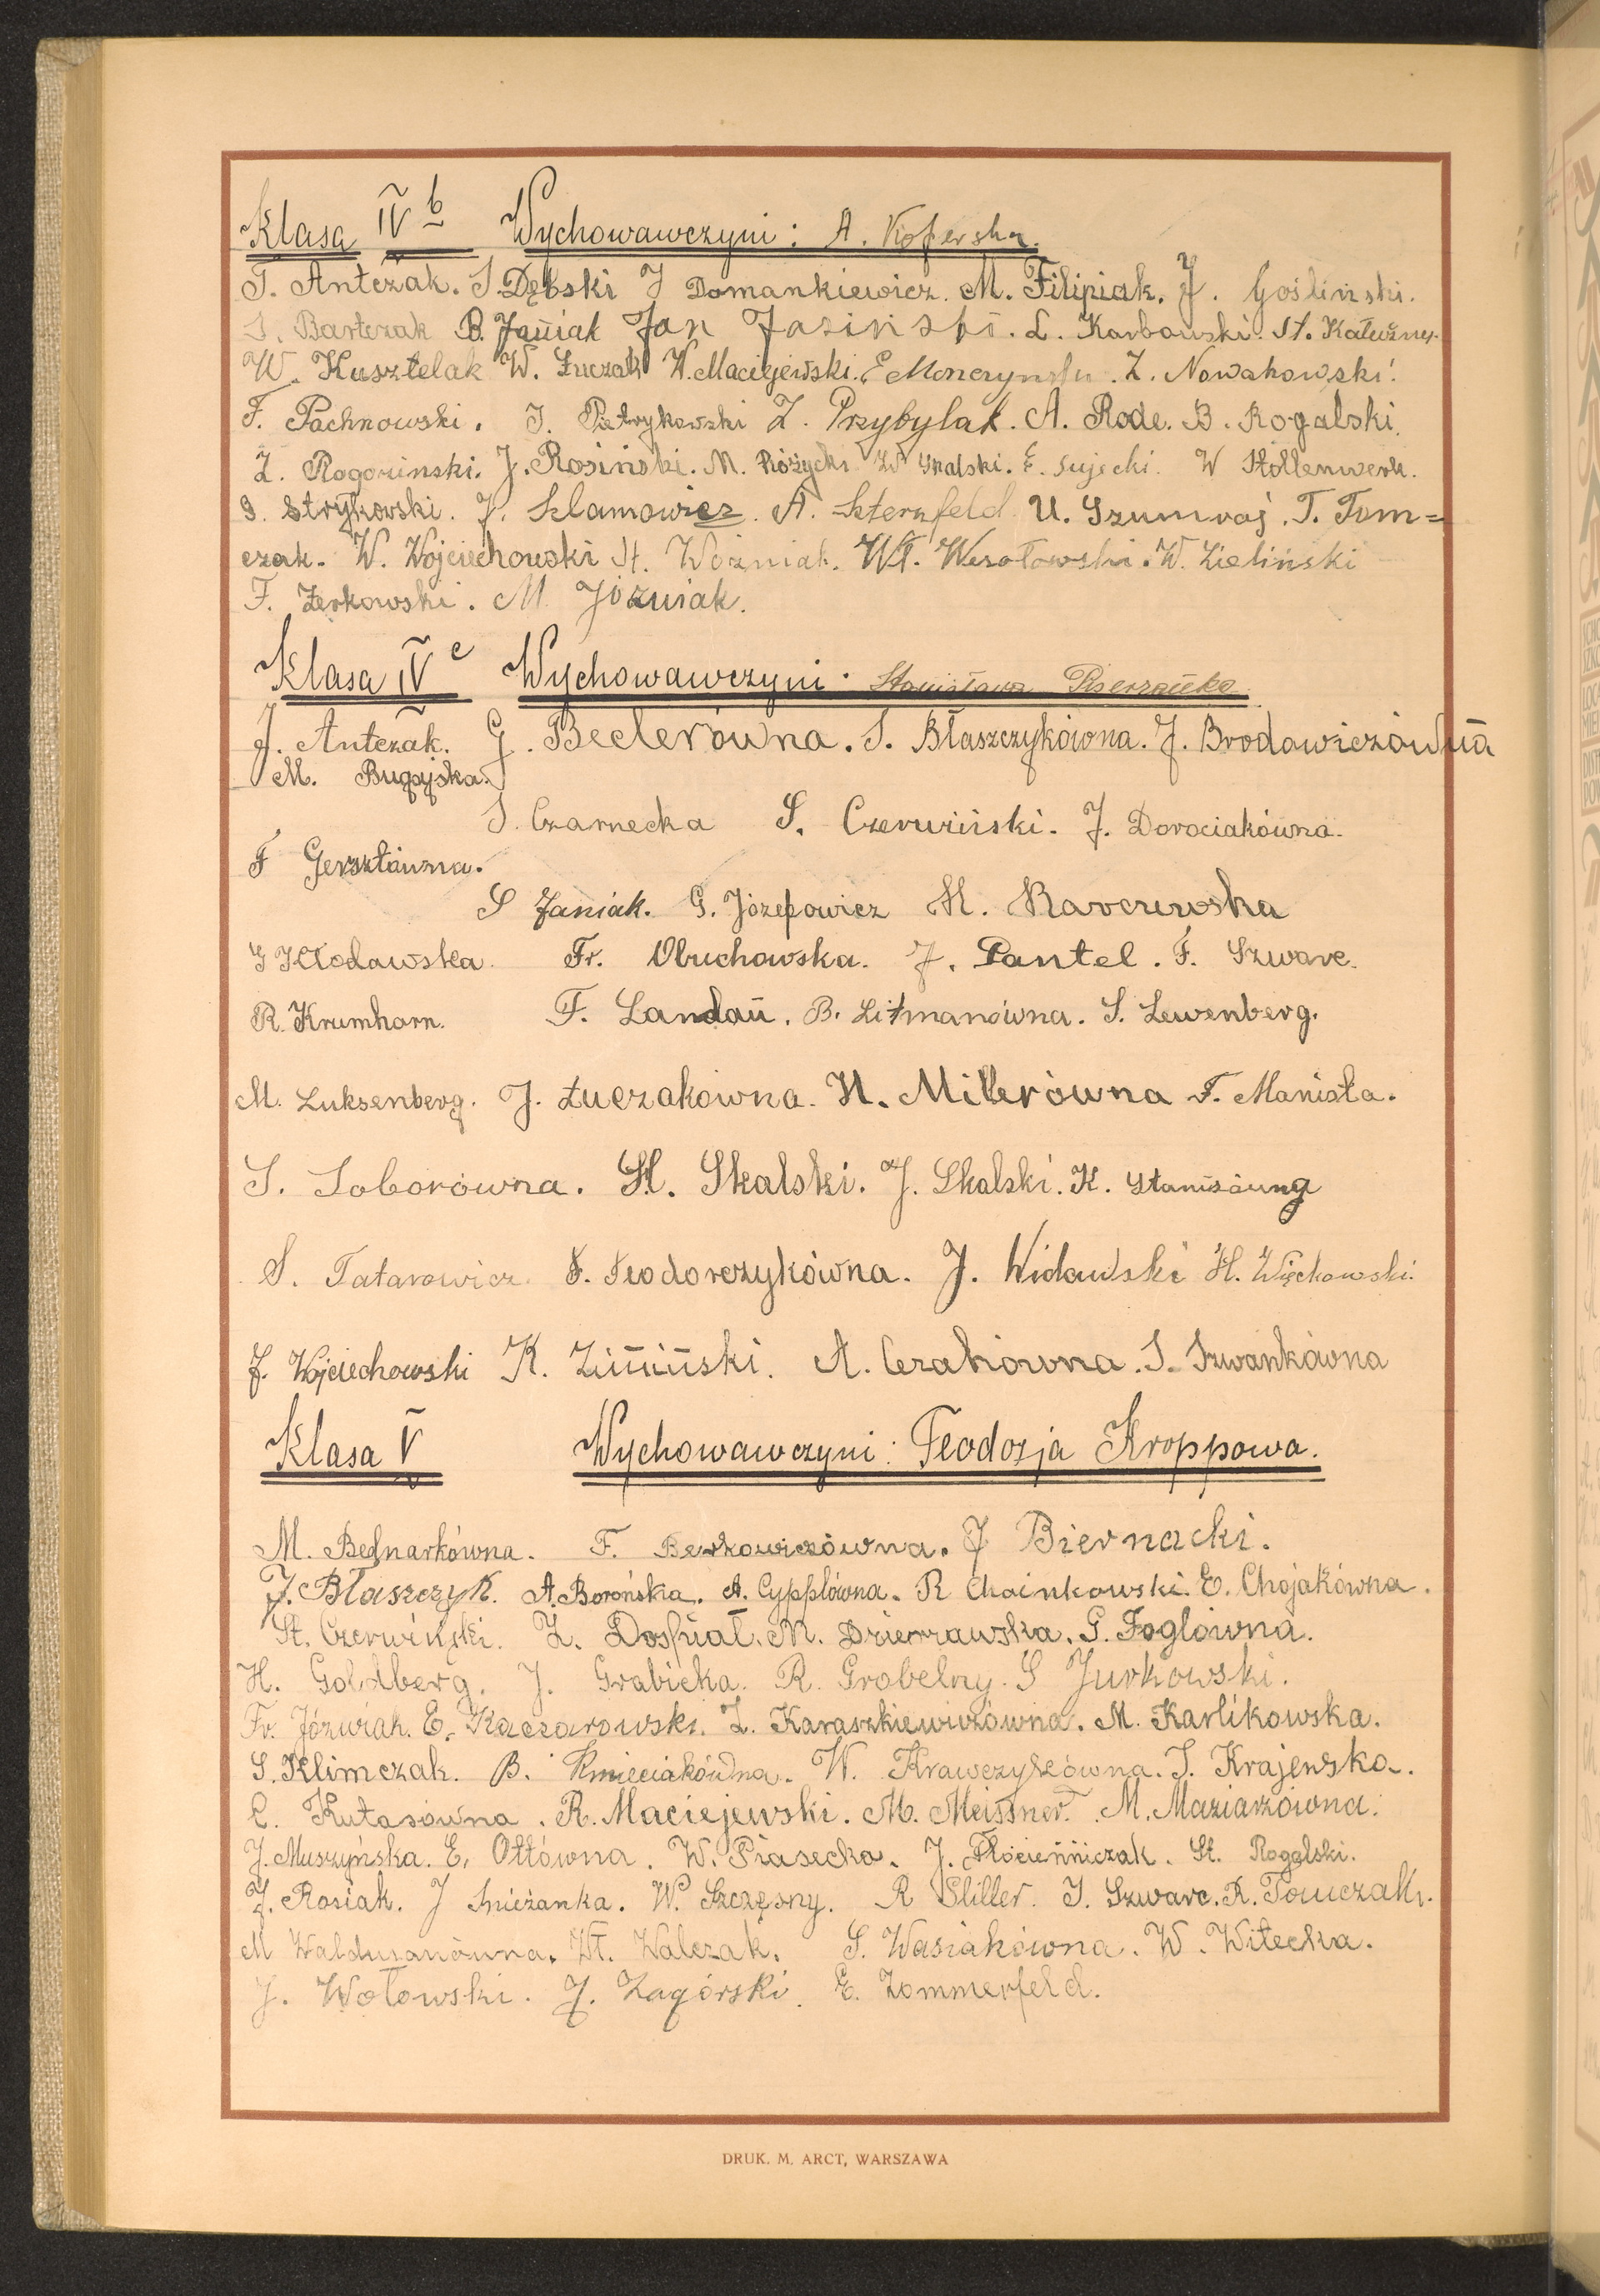 Klasa IV b Wychowawczyni: A. Koferska.
T. Antczak. S. Dębski J Domankiewicz. M. Filipiak. J. Gośliński.
S. Bartczak B. Janiak Jan Jasiński. L. Karbowski. St. Kałużny.
W. Kusztelak W. Łuczak W. Maciejewski. E Z. Nowakowski.
F. Pachnowski. J. Pietrykowski Z. Przybylak. A. Rode. B. Rogalski.
Z. Rogoziński. J. Rosiński. M. Różycki W Skalski. E. Sujecki. W Stollenwerk.
S. Strykowski. J. Sklamowicz. A. Szternfeld U. Szumraj. T. Tom=
czak. W. Wojciechowski St. Woźniak. Wł. Wesołowski. W. Zieliński
F. Żerkowski. M. Jóźwiak.
Klasa IV c Wychowawczyni: Stanisława
J. Antczak. G. Beclerówna. S. Błaszczykówna. J. Brodowiczówna
M. Bugajska.
S. Czarnecka S. Czerwiński. J. Dorociakówna.
F Gersztówna.
S Janiak. G. Józefowicz H. Karczewska
G Kłodawska. Fr. Obuchowska. J. Pantel. F. Szwarc.
R. Krumhorn. F. Landau. B. Litmanówna. S. Lewenberg.
M. Luksenberg. J. Łuczakówna. H. Millerówna F. Manista.
S. Soborówna. H. Skalski. J. Skalski. K.
S. Tatarowicz. F. Teodorczykówna. J. Widawski H. Więckowski.
J. Wojciechowski K. Zimiński. A. Czakówna. S. Szwankówna
Klasa V Wychowawczyni: Teodozja Kroppowa.
M. Bednarkówna. F. Berkowiczówna. J Biernacki.
J. Błaszczyk. A. Borońska. A. Cypplówna. R Choinkowski. E. Chojakówna.
St. Czerwiński. Z. Dospiał. M. Dzierzawska. G. Foglówna.
H. Goldberg. J. Grabicka. R. Grobelny. S Jurkowski.
Fr. Jóźwiak. E. Kaczorowski. Z. Karaszkiewiczówna. M. Karlikowska.
S. Klimczak. B. Kmieciakówna. W. Krawczykówna. J. Krajewska.
C. Kutasówna. R. Maciejewski. M. Meissner. M. Maziarzówna.
J. Muszyńska. E. Ottówna. W. Piasecka. J. Płócienniczak. St. Rogalski.
J. Rosiak. J Śnieżanka. W. Szczęsny. R Sliller. J. Szwarc. R. Tomczak.
M Waldusanówna. Wł. Walczak. S. Wasiakówna. W. Witecka.
J. Wołowski. J. Zagórski. E. Zommerfeld.
DRUK. M. ARCT, WARSZAWA